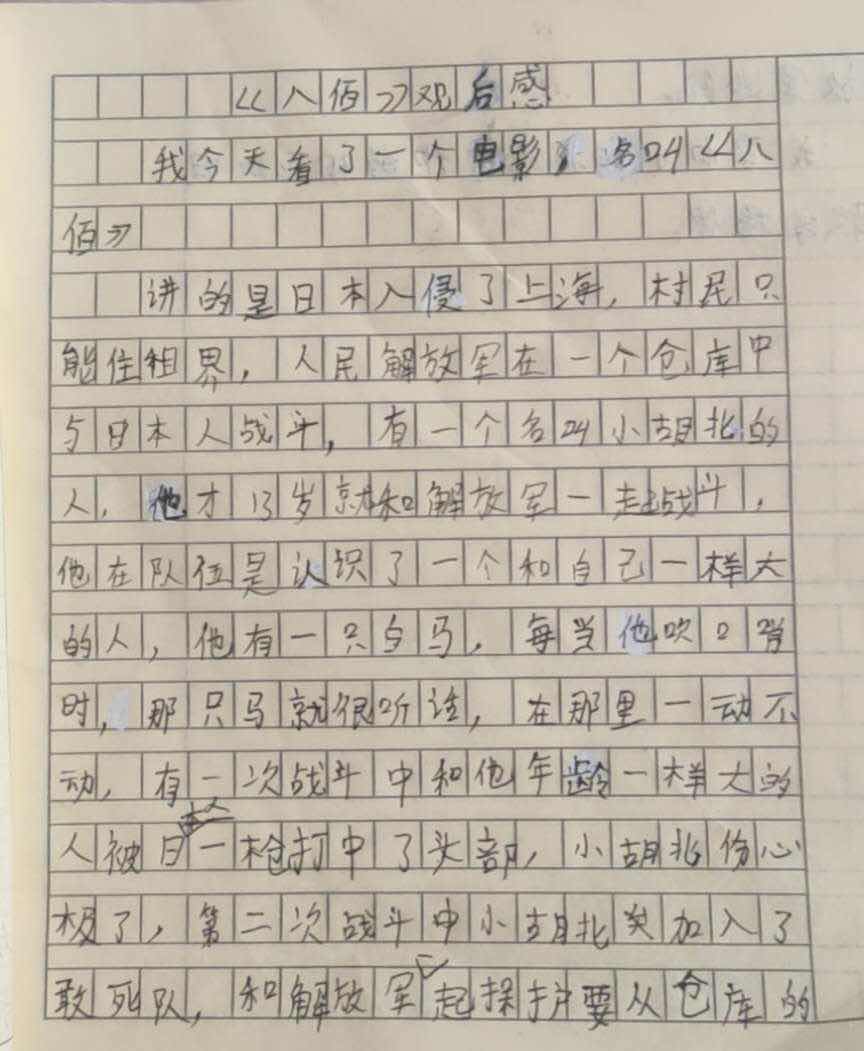 《八佰》观后感
我今天看了一个电影，名叫《八
佰》
讲的是日本入侵了上海，村民只
能住租界，人民解放军在一个仓库中
与日本人战斗，有一个名叫小胡北的
人，他才13岁就和解放军一起战斗，
他在队伍是认识了一个和自己一样大
的人，他有一只白马，每当他吹口哨
时，那只马就很听话，在那里一动不
动，有一次战斗中和他年龄一样大的
人被日本人一枪打中了头部，小胡北伤心
极了，第二次战斗中小胡北加入了
敢死队，和解放军起保护要从仓库的